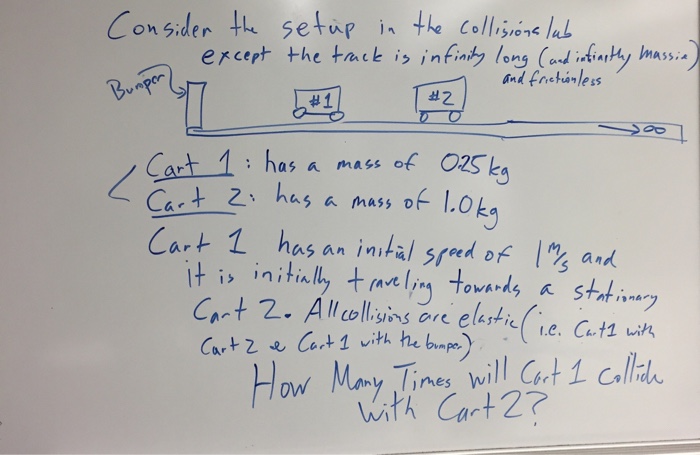 Consider the setup in the collisions lab
except the track is infinity long (and infinitly massive)
and frictionless
Bumper
#1
#2
→∞
Cart 1: has a mass of 0.25 kg
Cart 2: has a mass of 1.0 kg
Cart 1 has an initial speed of 1 m/s and
it is initially traveling towards a stationary
Cart 2. All collisions are elastic (i.e. Cart 1 with
Cart 2 & Cart 1 with the bumper)
How Many Times will Cart 1 Collide
with Cart 2?